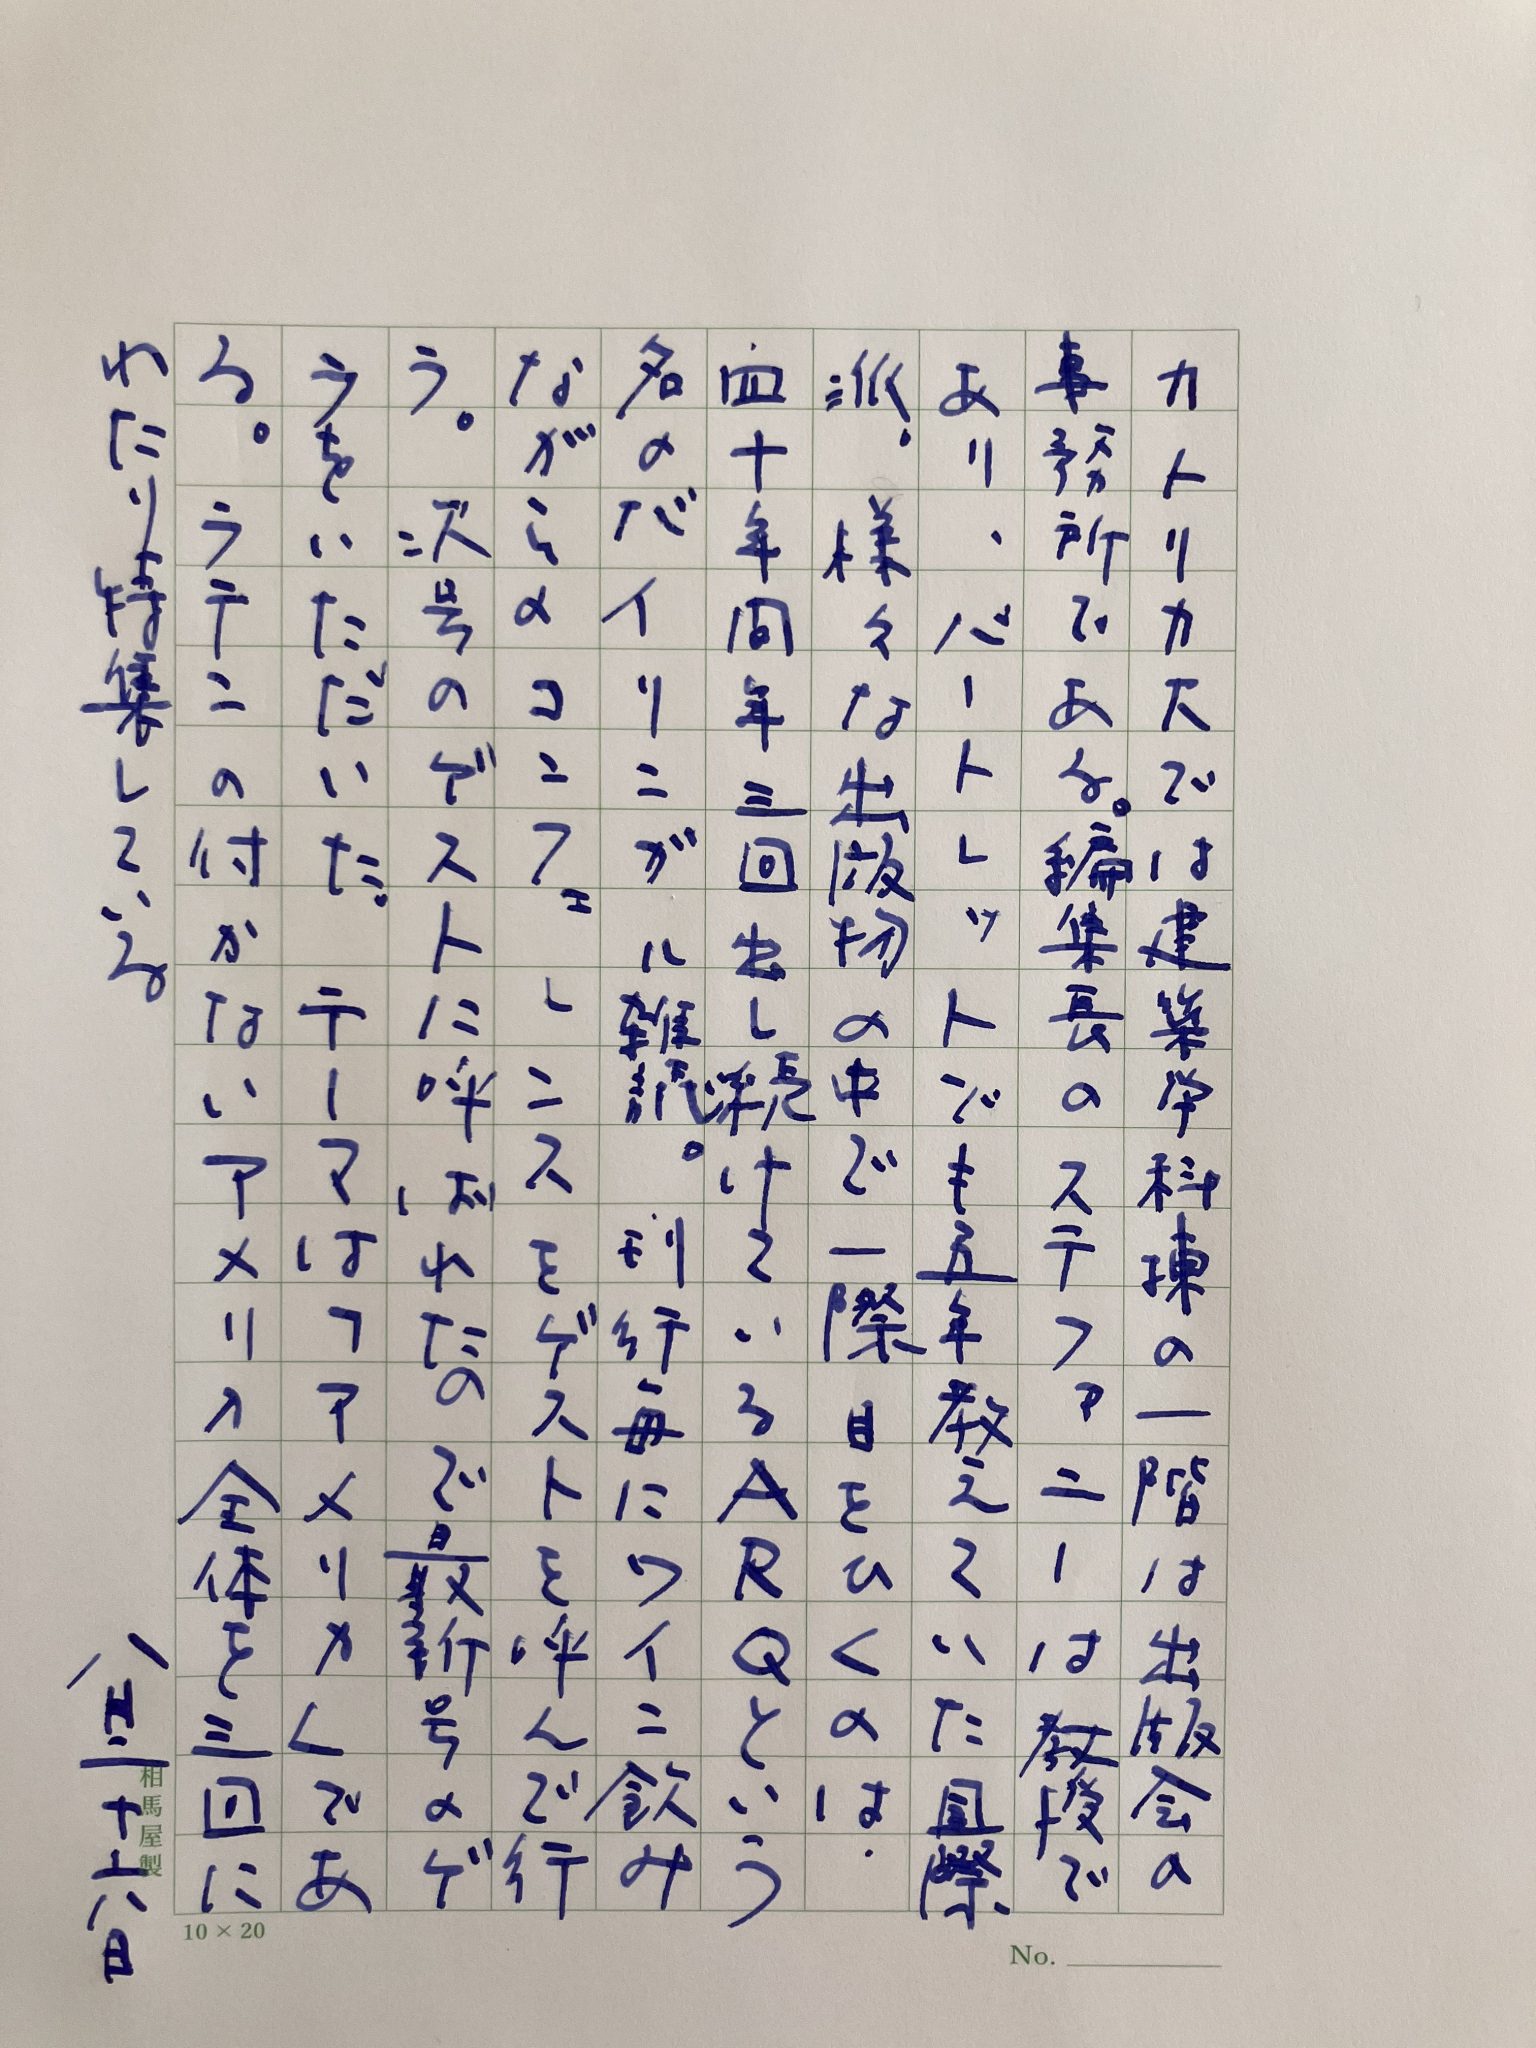 カトリカ大では建築学科棟の一階は出版会の
事務所である。編集長のステファニーは教授で
あり、バートレットでも五年教えていた国際
派。様々な出版物の中で一際目をひくのは、
四十年間年三回出し続けているARQという
名のバイリンガル雑誌。刊行毎にワイン飲み
ながらのコンフェレンスをゲストを呼んで行
う。次号のゲストに呼ばれたので最新号のゲ
ラをいただいた。テーマは「アメリカ」であ
る。ラテンの付かないアメリカ全体を三回に
わたり特集している
八月二十六日
相馬屋製
10 × 20
No.